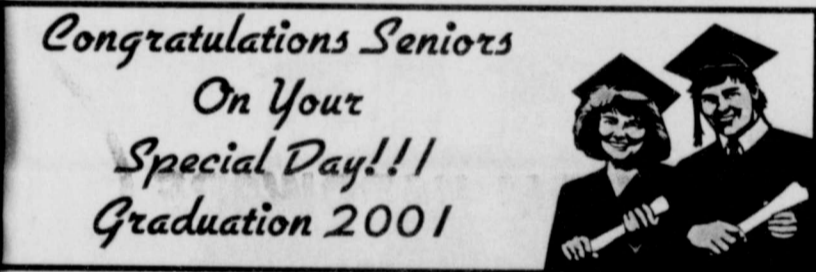 Congratulations Seniors
On Your
Special Day!!!
Graduation 2001